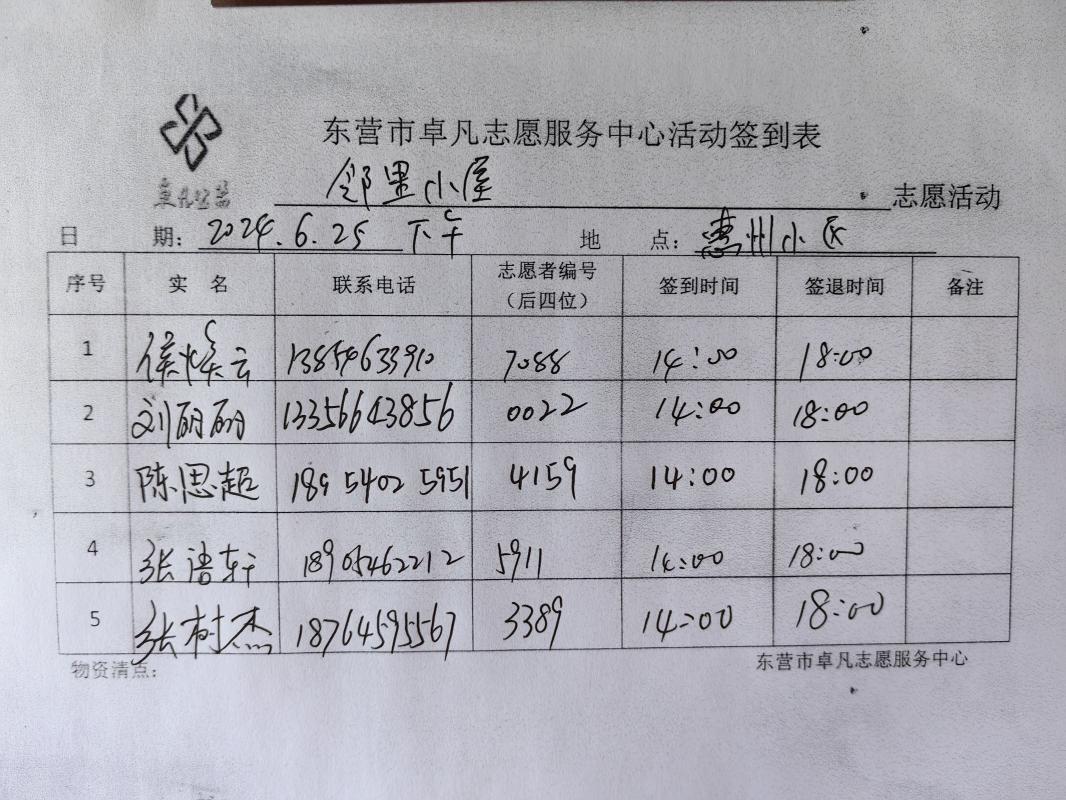 东营市卓凡志愿服务中心活动签到表
卓凡公益
邻里小屋 志愿活动
日 期：2024.6.25 下午 地 点：惠州小区
序号 实 名 联系电话 志愿者编号（后四位） 签到时间 签退时间 备注
1 侯焕云 13854633910 7088 14:00 18:00
2 刘丽丽 13356643856 0022 14:00 18:00
3 陈思超 189 5402 5951 4159 14:00 18:00
4 张语轩 18905462212 5911 14:00 18:00
5 张树杰 18764595567 3389 14:00 18:00
物资清点： 东营市卓凡志愿服务中心